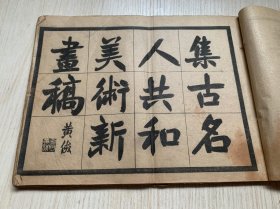 集古名
人共和
美術新
畫稿
黃俊